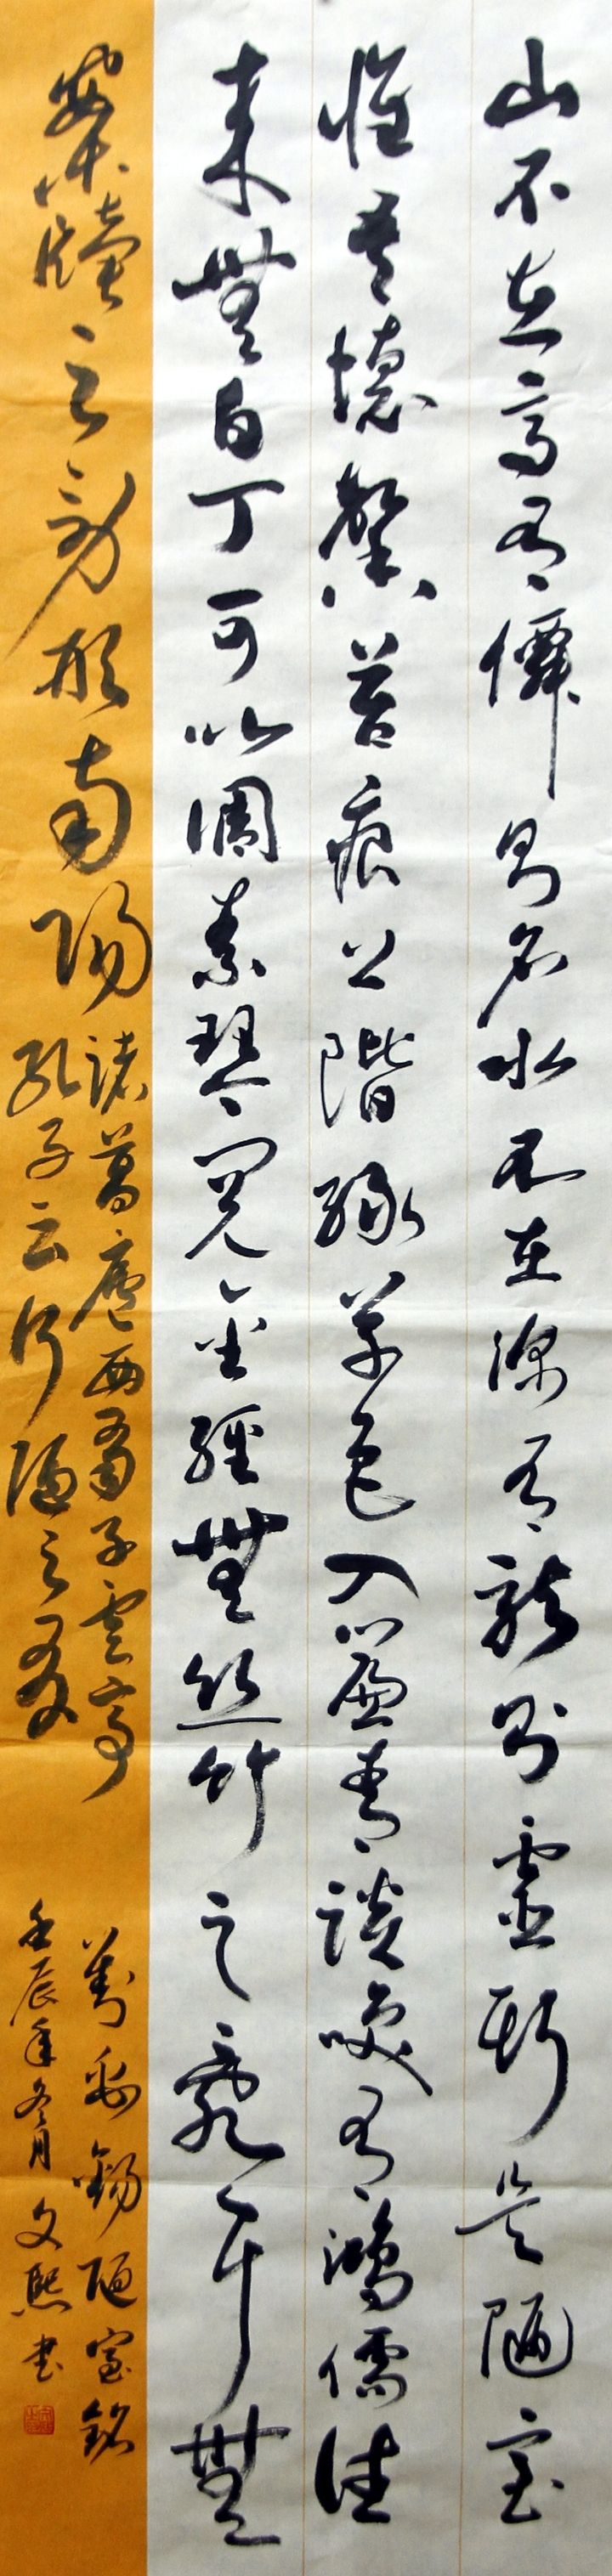 山不在高有僊則名水不在深有龍則靈斯是陋室
惟吾德馨苔痕上階綠草色入簾青談咲有鴻儒往
來無白丁可以調素琴閱金經無絲竹之亂耳無
案牘之勞形南陽
諸葛廬西蜀子雲亭
孔子云何陋之有
劉禹錫陋室銘
壬辰年冬月文熙書